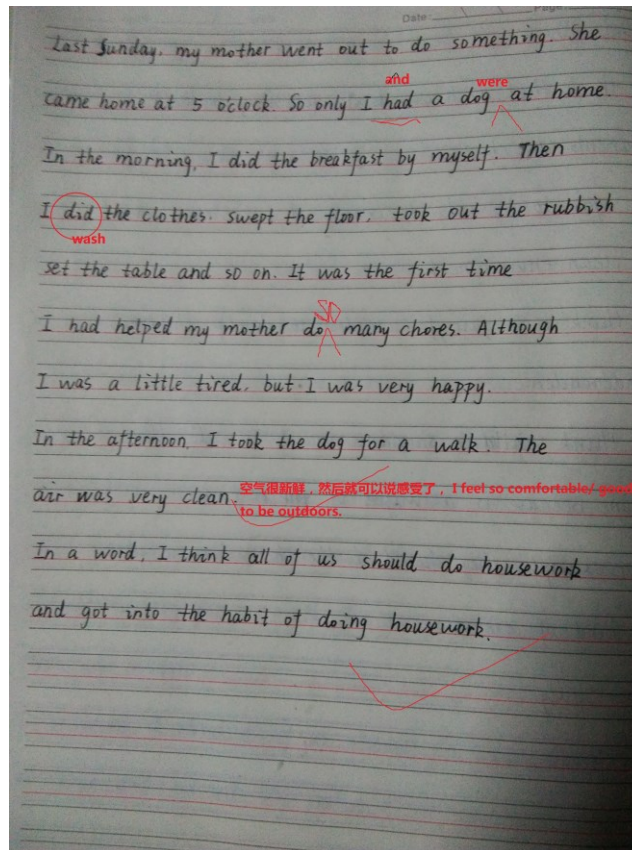 Date
Last Sunday, my mother went out to do something. She
and were
came home at 5 o'clock. So only I had a dog at home.
In the morning, I did the breakfast by myself. Then
I did the clothes. swept the floor, took out the rubbish
wash
set the table and so on. It was the first time
so
I had helped my mother do many chores. Although
I was a little tired, but I was very happy.
In the afternoon, I took the dog for a walk. The
air was very clean. 空气很新鲜，然后就可以说感受了，I feel so comfortable/ good
to be outdoors.
In a word, I think all of us should do housework
and got into the habit of doing housework.